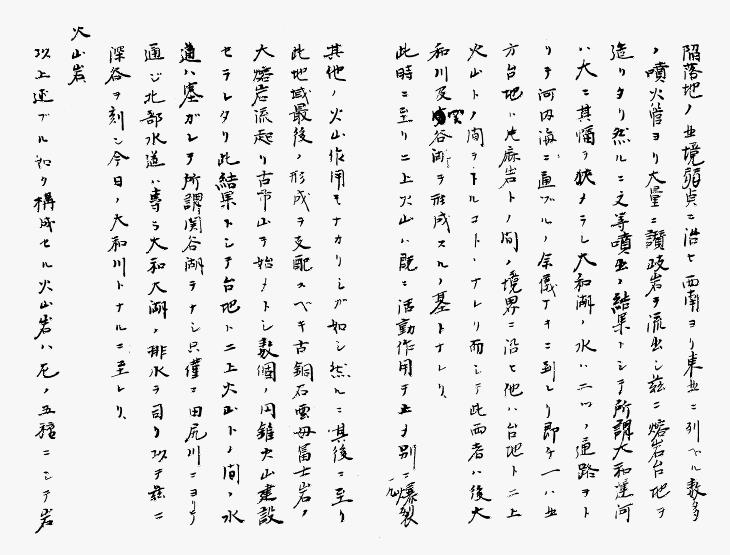 陥落地ノ北境弱点ニ沿ヒ西南ヨリ東北ニ列ベル数多
ノ噴火管ヨリ大量ニ讃岐岩ヲ流出シ茲ニ熔岩台地ヲ
造リタリ然ルニ之等噴出ノ結果トシテ所謂大和運河
ハ大ニ其幅ヲ狭メラレ大和湖ノ水ハ二ツノ通路ヲト
リテ河内海ニ通ズルノ余儀ナキニ到レリ即チ一ハ北
方台地ト片麻岩トノ間ノ境界ニ沿ヒ他ハ台地ト二上
火山トノ間ヲトルコトヽナレリ而シテ此両者ハ後大
和川及関谷湖ヲ形成スルノ基トナレリ
此時ニ至リ二上火山ハ既ニ活動作用ヲ止メ別ニ爆裂
其他ノ火山作用モナカリシガ如シ然ルニ其後ニ至リ
此地域最後ノ形成ヲ支配スベキ古銅石雲母富士岩ノ
大熔岩流起リ古市山ヲ始メトシ数個ノ円錐火山建設
セラレタリ此結果トシテ台地ト二上火山トノ間ノ水
道ハ塞ガレテ所謂関谷湖ヲナシ只僅ニ田尻川ニヨリテ
通ジ北部水道ハ専ラ大和大湖ノ排水ヲ司リ以テ茲ニ
深谷ヲ刻シ今日ノ大和川トナルニ至レリ
火山岩
以上述ブル如ク構成セル火山岩ハ凡ソ五種ニシテ岩